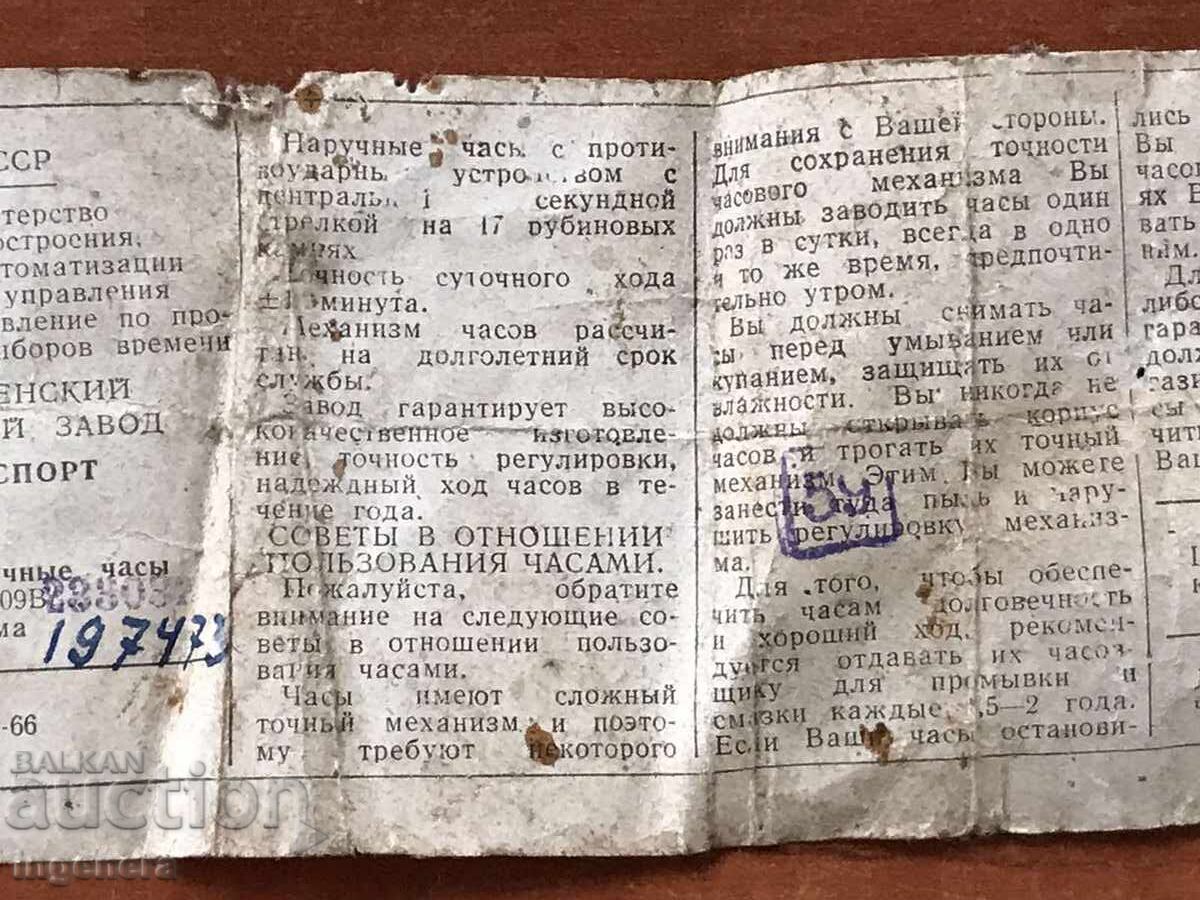 ССР
терство
остроения,
томатизации
управления
вление по про-
иборов времени
ЕНСКИЙ
Й ЗАВОД
СПОРТ
чные часы
09В
ма
197473
-66
Наручные часы с проти-
воударны устро вом с
централь секундной
стрелкой на 17 рубиновых
камнях
Точность суточного хода
минута.
Механизм часов рассчи-
тан на долголетний срок
службы.
Завод гарантирует высо-
кокачественное изготовле-
ние, точность регулировки,
надеждный ход часов в те-
чение года.
СОВЕТЫ В ОТНОШЕНИИ
ПОЛЬЗОВАНИЯ ЧАСАМИ.
Пожалуйста, обратите
внимание на следующие со-
веты в отношении пользо-
вания часами.
Часы имеют сложный
точный механизм и поэто-
му требуют некоторого
внимания с Вашей стороны.
Для сохранения точности
часового механизма Вы
должны заводить часы один
раз в сутки, всегда в одно
и то же время, предпочти-
тельно утром.
Вы должны снимать ча-
сы перед умыванием или
купанием, защищать их от
влажности. Вы никогда не
должны открывать корпус
часов и трогать их точный
механизм. Этим Вы можете
занести туда пыль и нару-
шить регулировку механиз-
ма.
БУ
Для того, чтобы обеспе-
чить часам долговечность
и хороший ход, рекомен-
дуется отдавать их часов-
щику для промывки и
смазки каждые ,5—2 года.
Если Ваши часы останови-
лись
Вы
часо
ях В
вать
ним.
Дл
либо
гара
долж
гази
сы
чить
Ваш
BALKAN
auction
ingenera